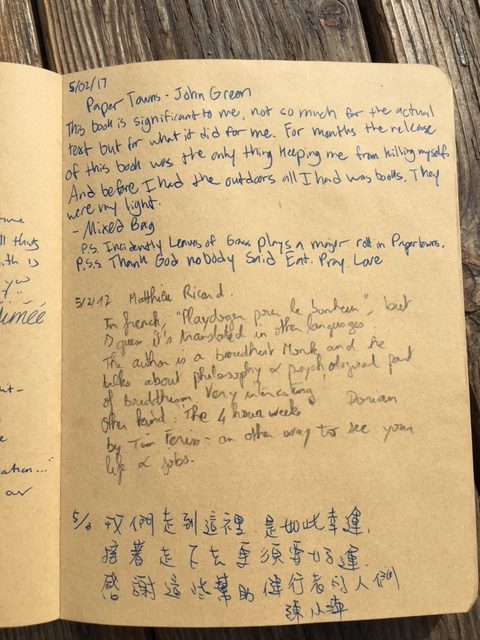 ll that
with is
you
5/02/17
Paper Towns - John Green
This book is significant to me, not so much for the actual
text but for what it did for me. For months the release
of this book was the only thing keeping me from killing myself.
And before I had the outdoors all I had was books. They
were my light.
- Mixed Bag
P.S. Incidently Leaves of Grass plays a major roll in Papertowns.
P.S.S. Thank God nobody said Eat. Pray. Love
5/2/17 Matthieu Ricard.
In french, "Playdoyer pour le bonheur", but
I guess it's translated in other languages.
The author is a bouddhest Monk and he
talks about philosophy & psychological part
of bruddhism. Very interesting. Dorian
Other kind: The 4 hour weeks
by Tim Feriss - an other way to see your
life & jobs.
5/2 我們走到這裡 是如此幸運,
接著走下去更須要好運.
感謝這些幫助健行者的人們
陳小